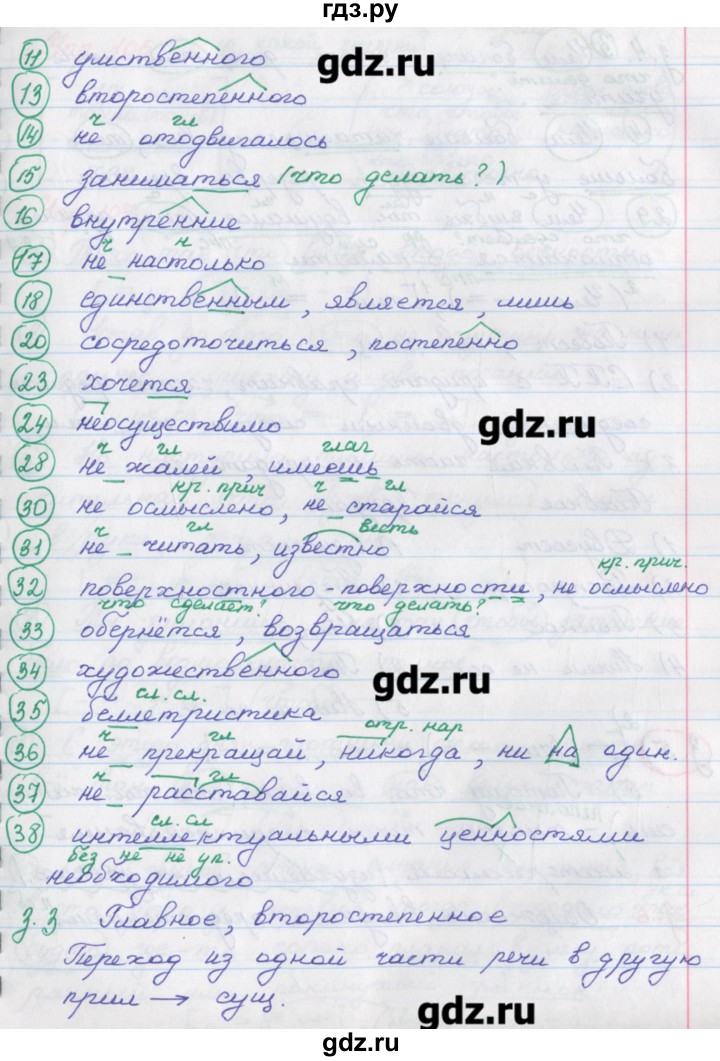 гдз.ру
11 умственного
gdz.ru
13 второстепенного
ч гл
14 не отодвигалось
15 заниматься (что делать?)
16 внутренние
ч н
17 не настолько
18 единственным, является, лишь
20 сосредоточиться, постепенно
23 хочется
24 неосуществимо
gdz.ru
ч гл глаг
28 не жалей, имеешь
кр. прич ч гл
30 не осмыслено, не старайся
ч гл весть
31 не читать, известно
кр. прич.
32 поверхностного - поверхности, не осмыслено
что сделает? что делать?
33 обернётся, возвращаться
34 художественного
gdz.ru
сл. сл.
35 беллетристика
ч гл отр. нар
36 не прекращай, никогда, ни на один.
ч гл
37 не расставайся
сл. сл
38 интеллектуальными ценностями
без не не уп.
необходимого
з.3 Главное, второстепенное
Переход из одной части речи в другую
прил → сущ.
gdz.ru
гдз.ру